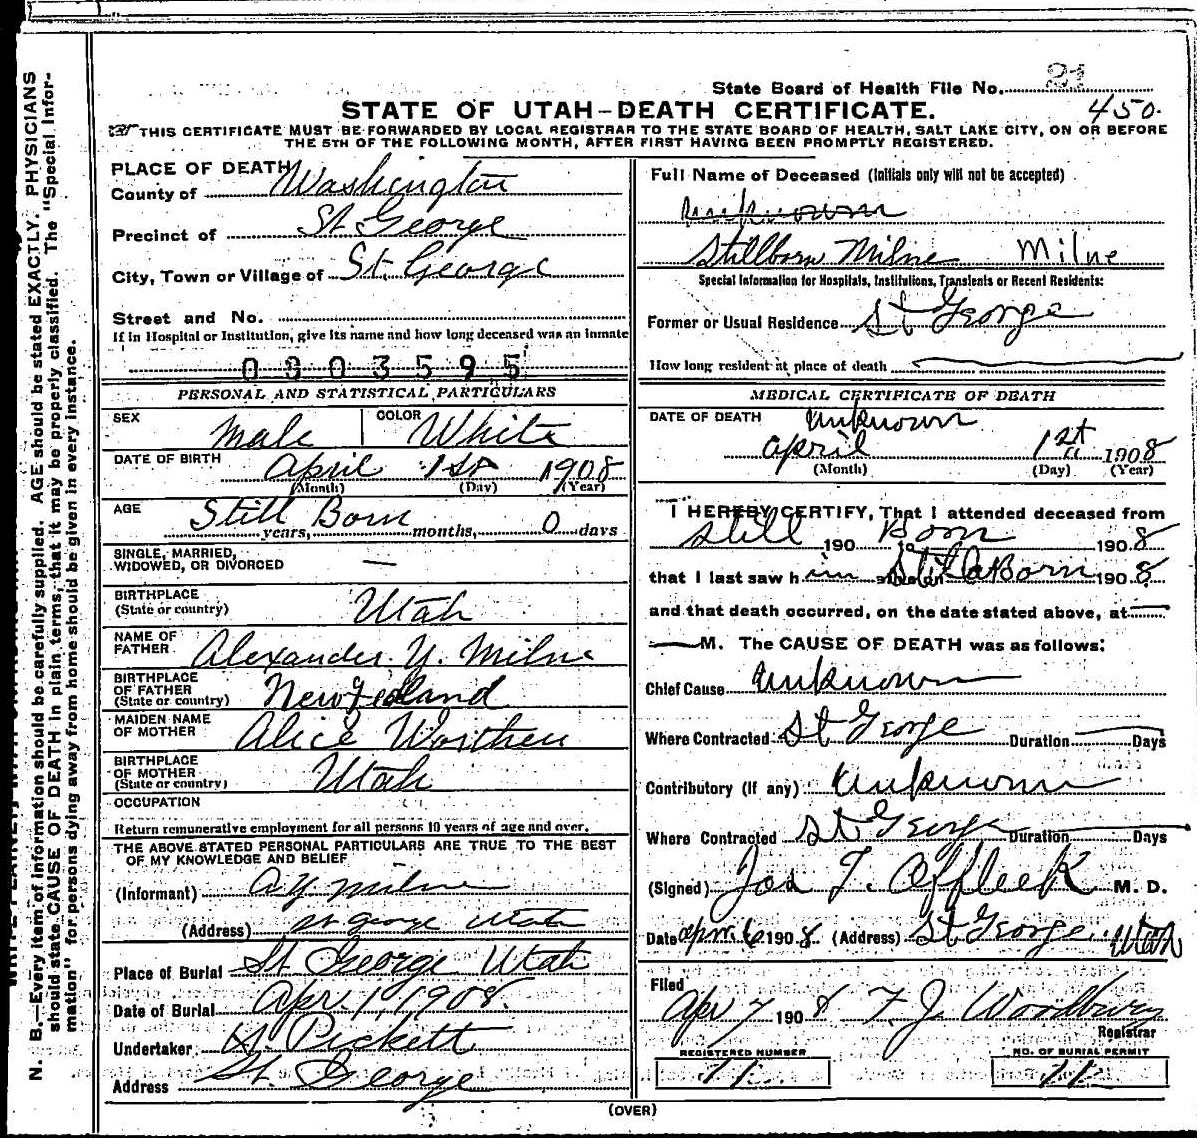 State Board of Health File No. 21
450.
STATE OF UTAH—DEATH CERTIFICATE.
THIS CERTIFICATE MUST BE FORWARDED BY LOCAL REGISTRAR TO THE STATE BOARD OF HEALTH, SALT LAKE CITY, ON OR BEFORE
THE 5TH OF THE FOLLOWING MONTH, AFTER FIRST HAVING BEEN PROMPTLY REGISTERED.
N. B.—Every item of information should be carefully supplied. AGE should be stated EXACTLY. PHYSICIANS
should state CAUSE OF DEATH in plain terms, that it may be properly classified. The "Special Infor-
mation" for persons dying away from home should be given in every instance.
PLACE OF DEATH
County of Washington
Precinct of St George
City, Town or Village of St. George
Street and No.
If in Hospital or Institution, give its name and how long deceased was an inmate
0003595
PERSONAL AND STATISTICAL PARTICULARS
SEX Male COLOR White
DATE OF BIRTH April 1st 1908
(Month) (Day) (Year)
AGE Still Born
years, months, 0 days
SINGLE, MARRIED,
WIDOWED, OR DIVORCED —
BIRTHPLACE
(State or country) Utah
NAME OF
FATHER Alexander Y. Milne
BIRTHPLACE
OF FATHER
(State or country) New Zealand
MAIDEN NAME
OF MOTHER Alice Worthen
BIRTHPLACE
OF MOTHER
(State or country) Utah
OCCUPATION
Return remunerative employment for all persons 10 years of age and over.
THE ABOVE STATED PERSONAL PARTICULARS ARE TRUE TO THE BEST
OF MY KNOWLEDGE AND BELIEF
(Informant) A Y Milne
(Address) St George Utah
Place of Burial St George Utah
Date of Burial Apr 1, 1908.
Undertaker Pickett
Address St. George
Full Name of Deceased (Initials only will not be accepted)
unknown
Stillborn Milne Milne
Special Information for Hospitals, Institutions, Transients or Recent Residents:
Former or Usual Residence St George
How long resident at place of death
MEDICAL CERTIFICATE OF DEATH
DATE OF DEATH unknown
April 1st 1908
(Month) (Day) (Year)
I HEREBY CERTIFY, That I attended deceased from
Still 190 to Born 1908
that I last saw him Still Born 1908
and that death occurred, on the date stated above, at
M. The CAUSE OF DEATH was as follows:
Chief Cause unknown
Where Contracted St George Duration Days
Contributory (If any) unknown
Where Contracted St George Duration Days
(Signed) Jos T. Affleck M. D.
Date Apr. 6 1908 (Address) St George, Utah
Filed
Apr 7 1908 F. J. Woodbury
Registrar
REGISTERED NUMBER NO. OF BURIAL PERMIT
11 11
(OVER)